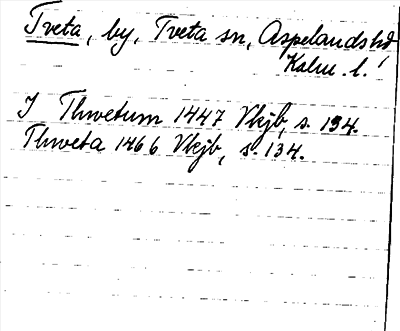 Tveta, by, Tveta sn, Aspelands hd
Kalm. l.
I Thwetum 1447 Vkjb, s. 134.
Thweta 1466 Vkjb, s. 134.